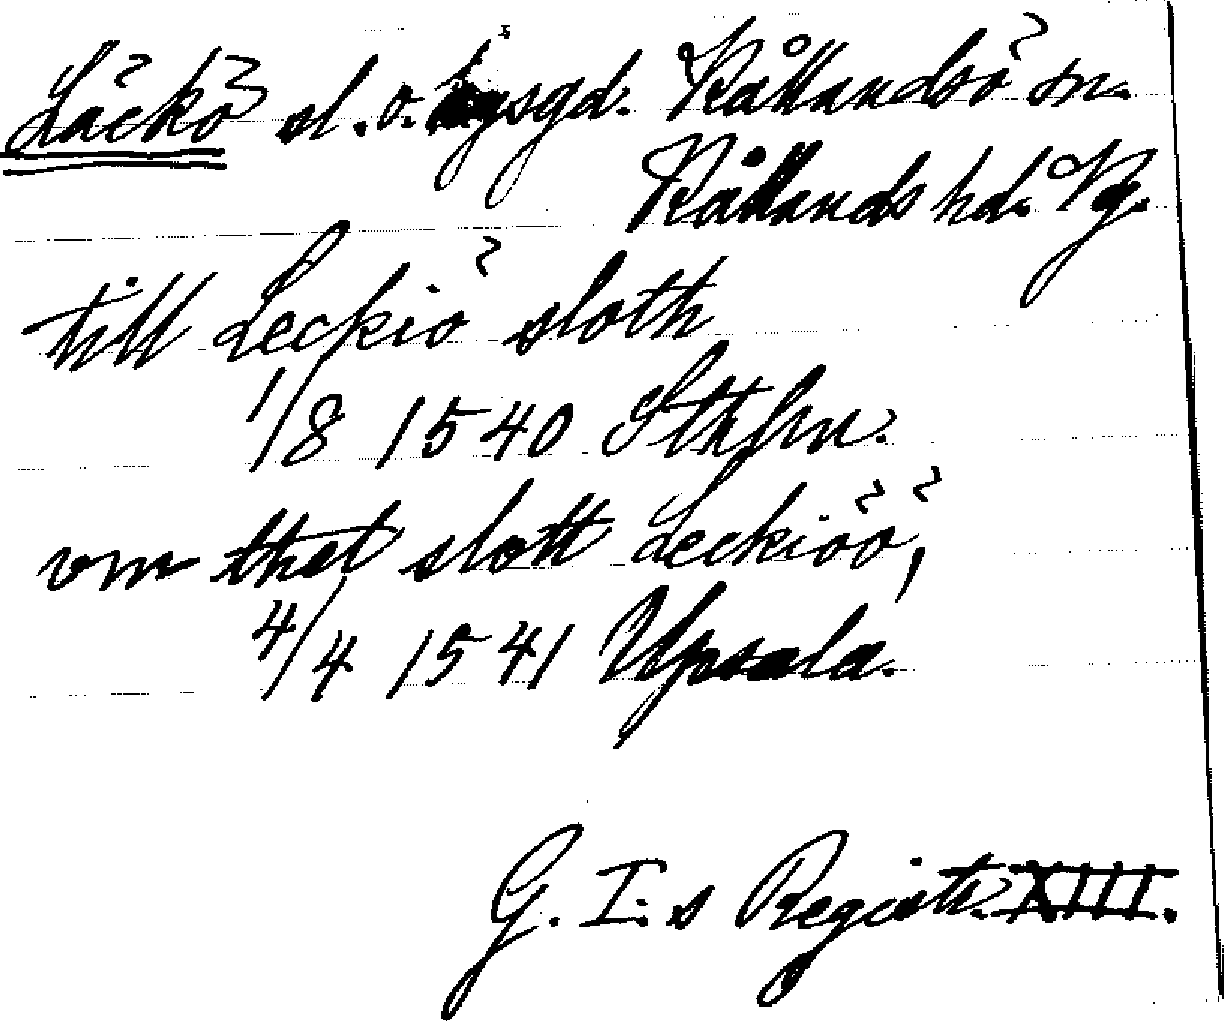 Läckö sl. o. kgsgd. Kållandsö sn.
Kållands hd. Vg.
till Leckiö sloth
1/8 1540 Sthlm.
vm that slott Leckiöö,
4/4 1541 Upsala.
G. I:s Registr. XIII.